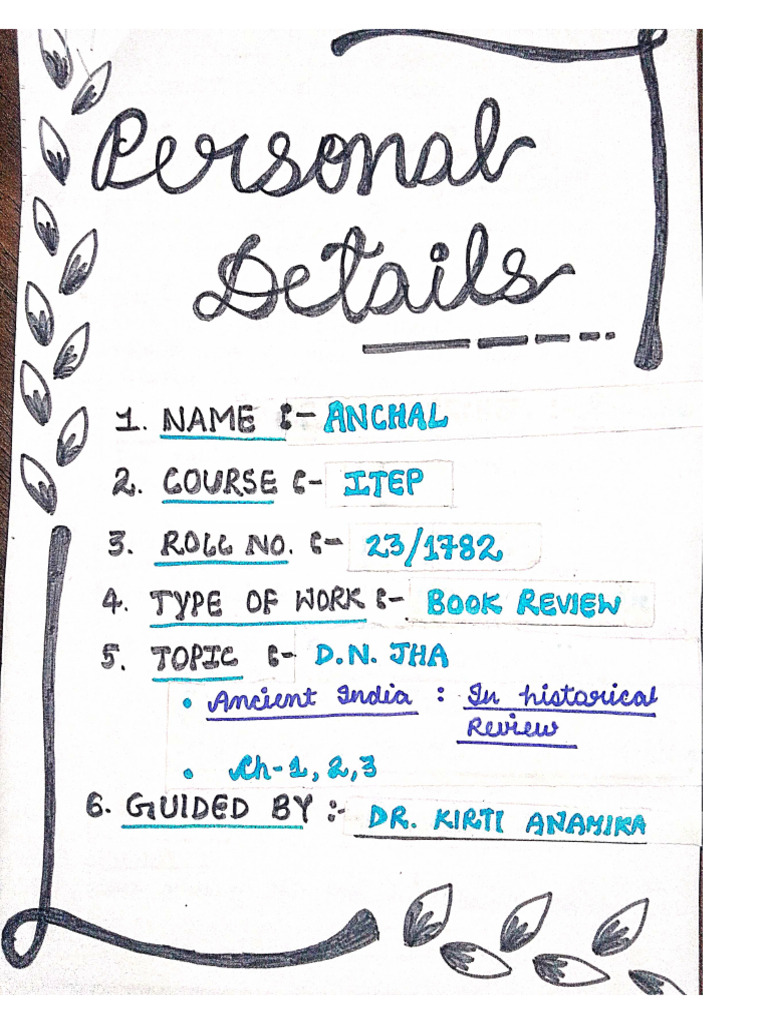 Personal
Details
1. NAME :- ANCHAL
2. COURSE :- ITEP
3. ROLL NO. :- 23/1782
4. TYPE OF WORK :- BOOK REVIEW
5. TOPIC :- D.N. JHA
• Ancient India : In historical
Review
• Ch-1, 2, 3
6. GUIDED BY :- DR. KIRTI ANAMIKA